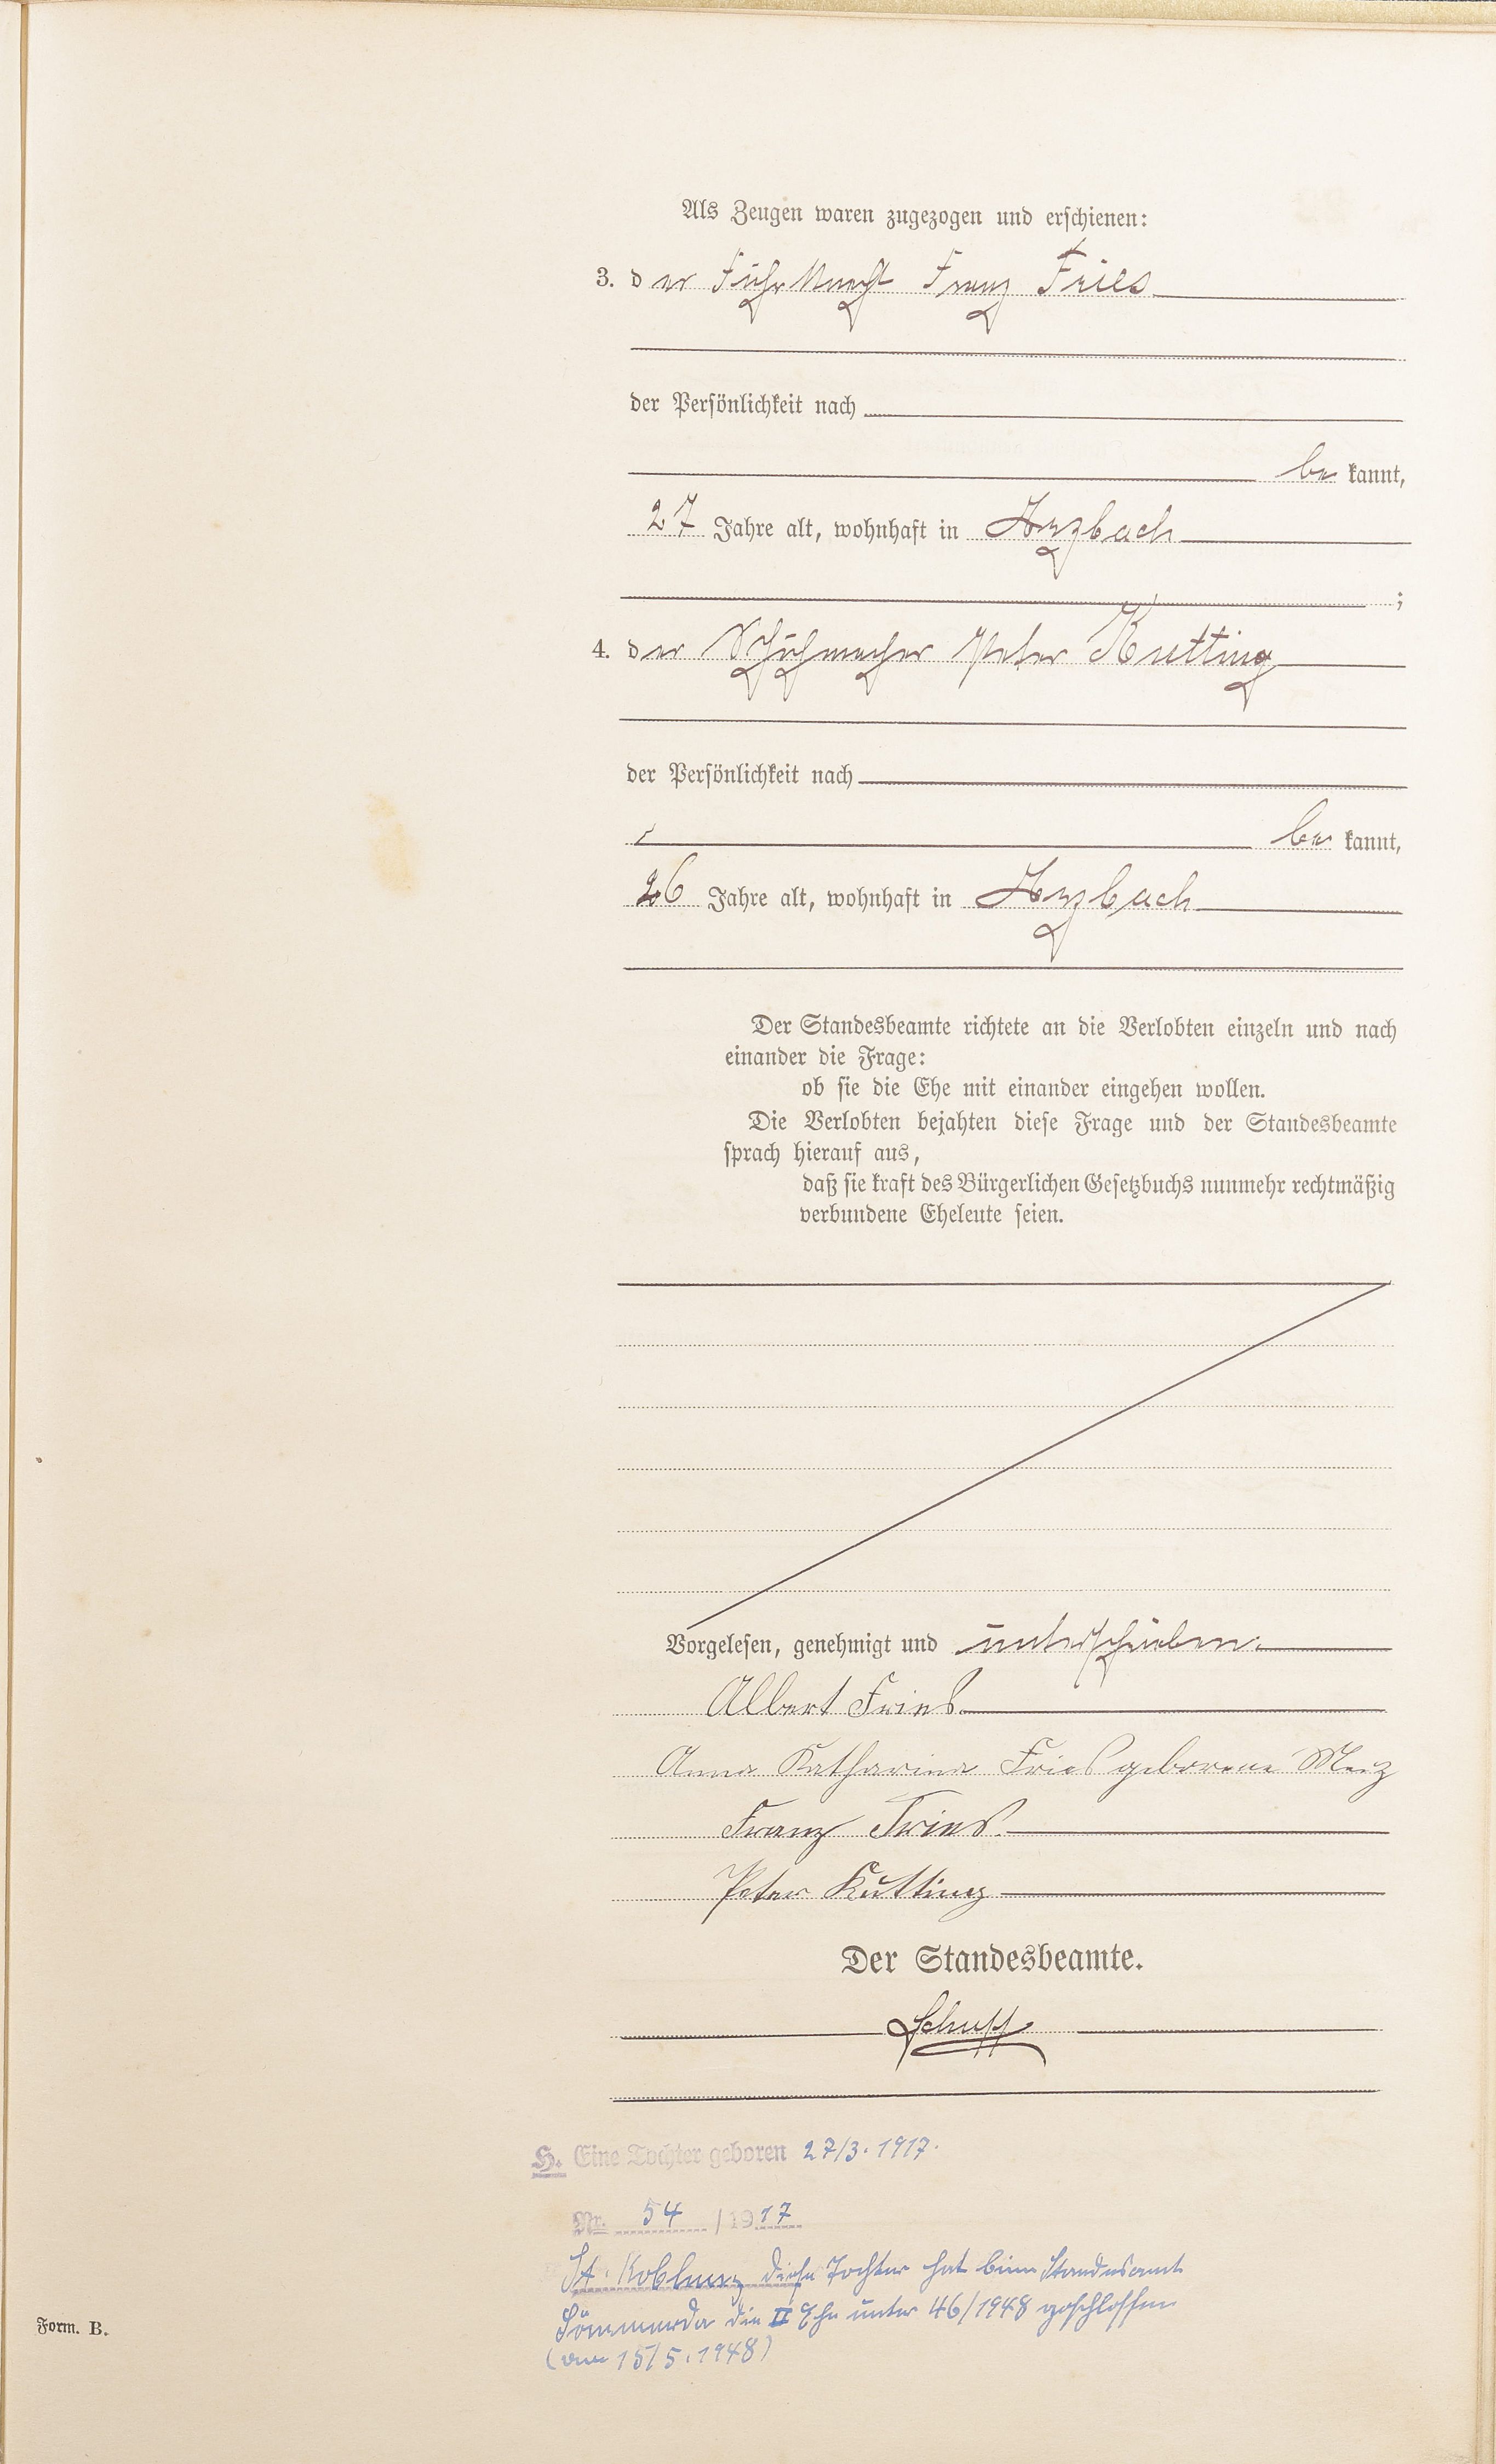 Als Zeugen waren zugezogen und erschienen:
3. der Fuhrknecht Franz Fries
der Persönlichkeit nach
be kannt,
27 Jahre alt, wohnhaft in Arzbach
;
4. der Schuhmacher Peter Kutting
der Persönlichkeit nach
be kannt,
26 Jahre alt, wohnhaft in Arzbach
Der Standesbeamte richtete an die Verlobten einzeln und nach
einander die Frage:
ob sie die Ehe mit einander eingehen wollen.
Die Verlobten bejahten diese Frage und der Standesbeamte
sprach hierauf aus,
daß sie kraft des Bürgerlichen Gesetzbuchs nunmehr rechtmäßig
verbundene Eheleute seien.
Vorgelesen, genehmigt und unterschrieben.
Albert Fries
Anna Katharina Fries geborene Merz
Franz Fries.
Peter Kutting
Der Standesbeamte.
Schupp
H. Eine Tochter geboren 27/3. 1917.
Nr. 54 / 1917
St. Koblenz diese Tochter hat beim Standesamt
Sömmerda die II Ehe unter 46/1948 geschlossen
(am 15/5. 1948)
Form. B.